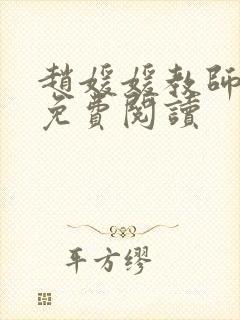 趙媛媛教師
免費閱讀
平方繆